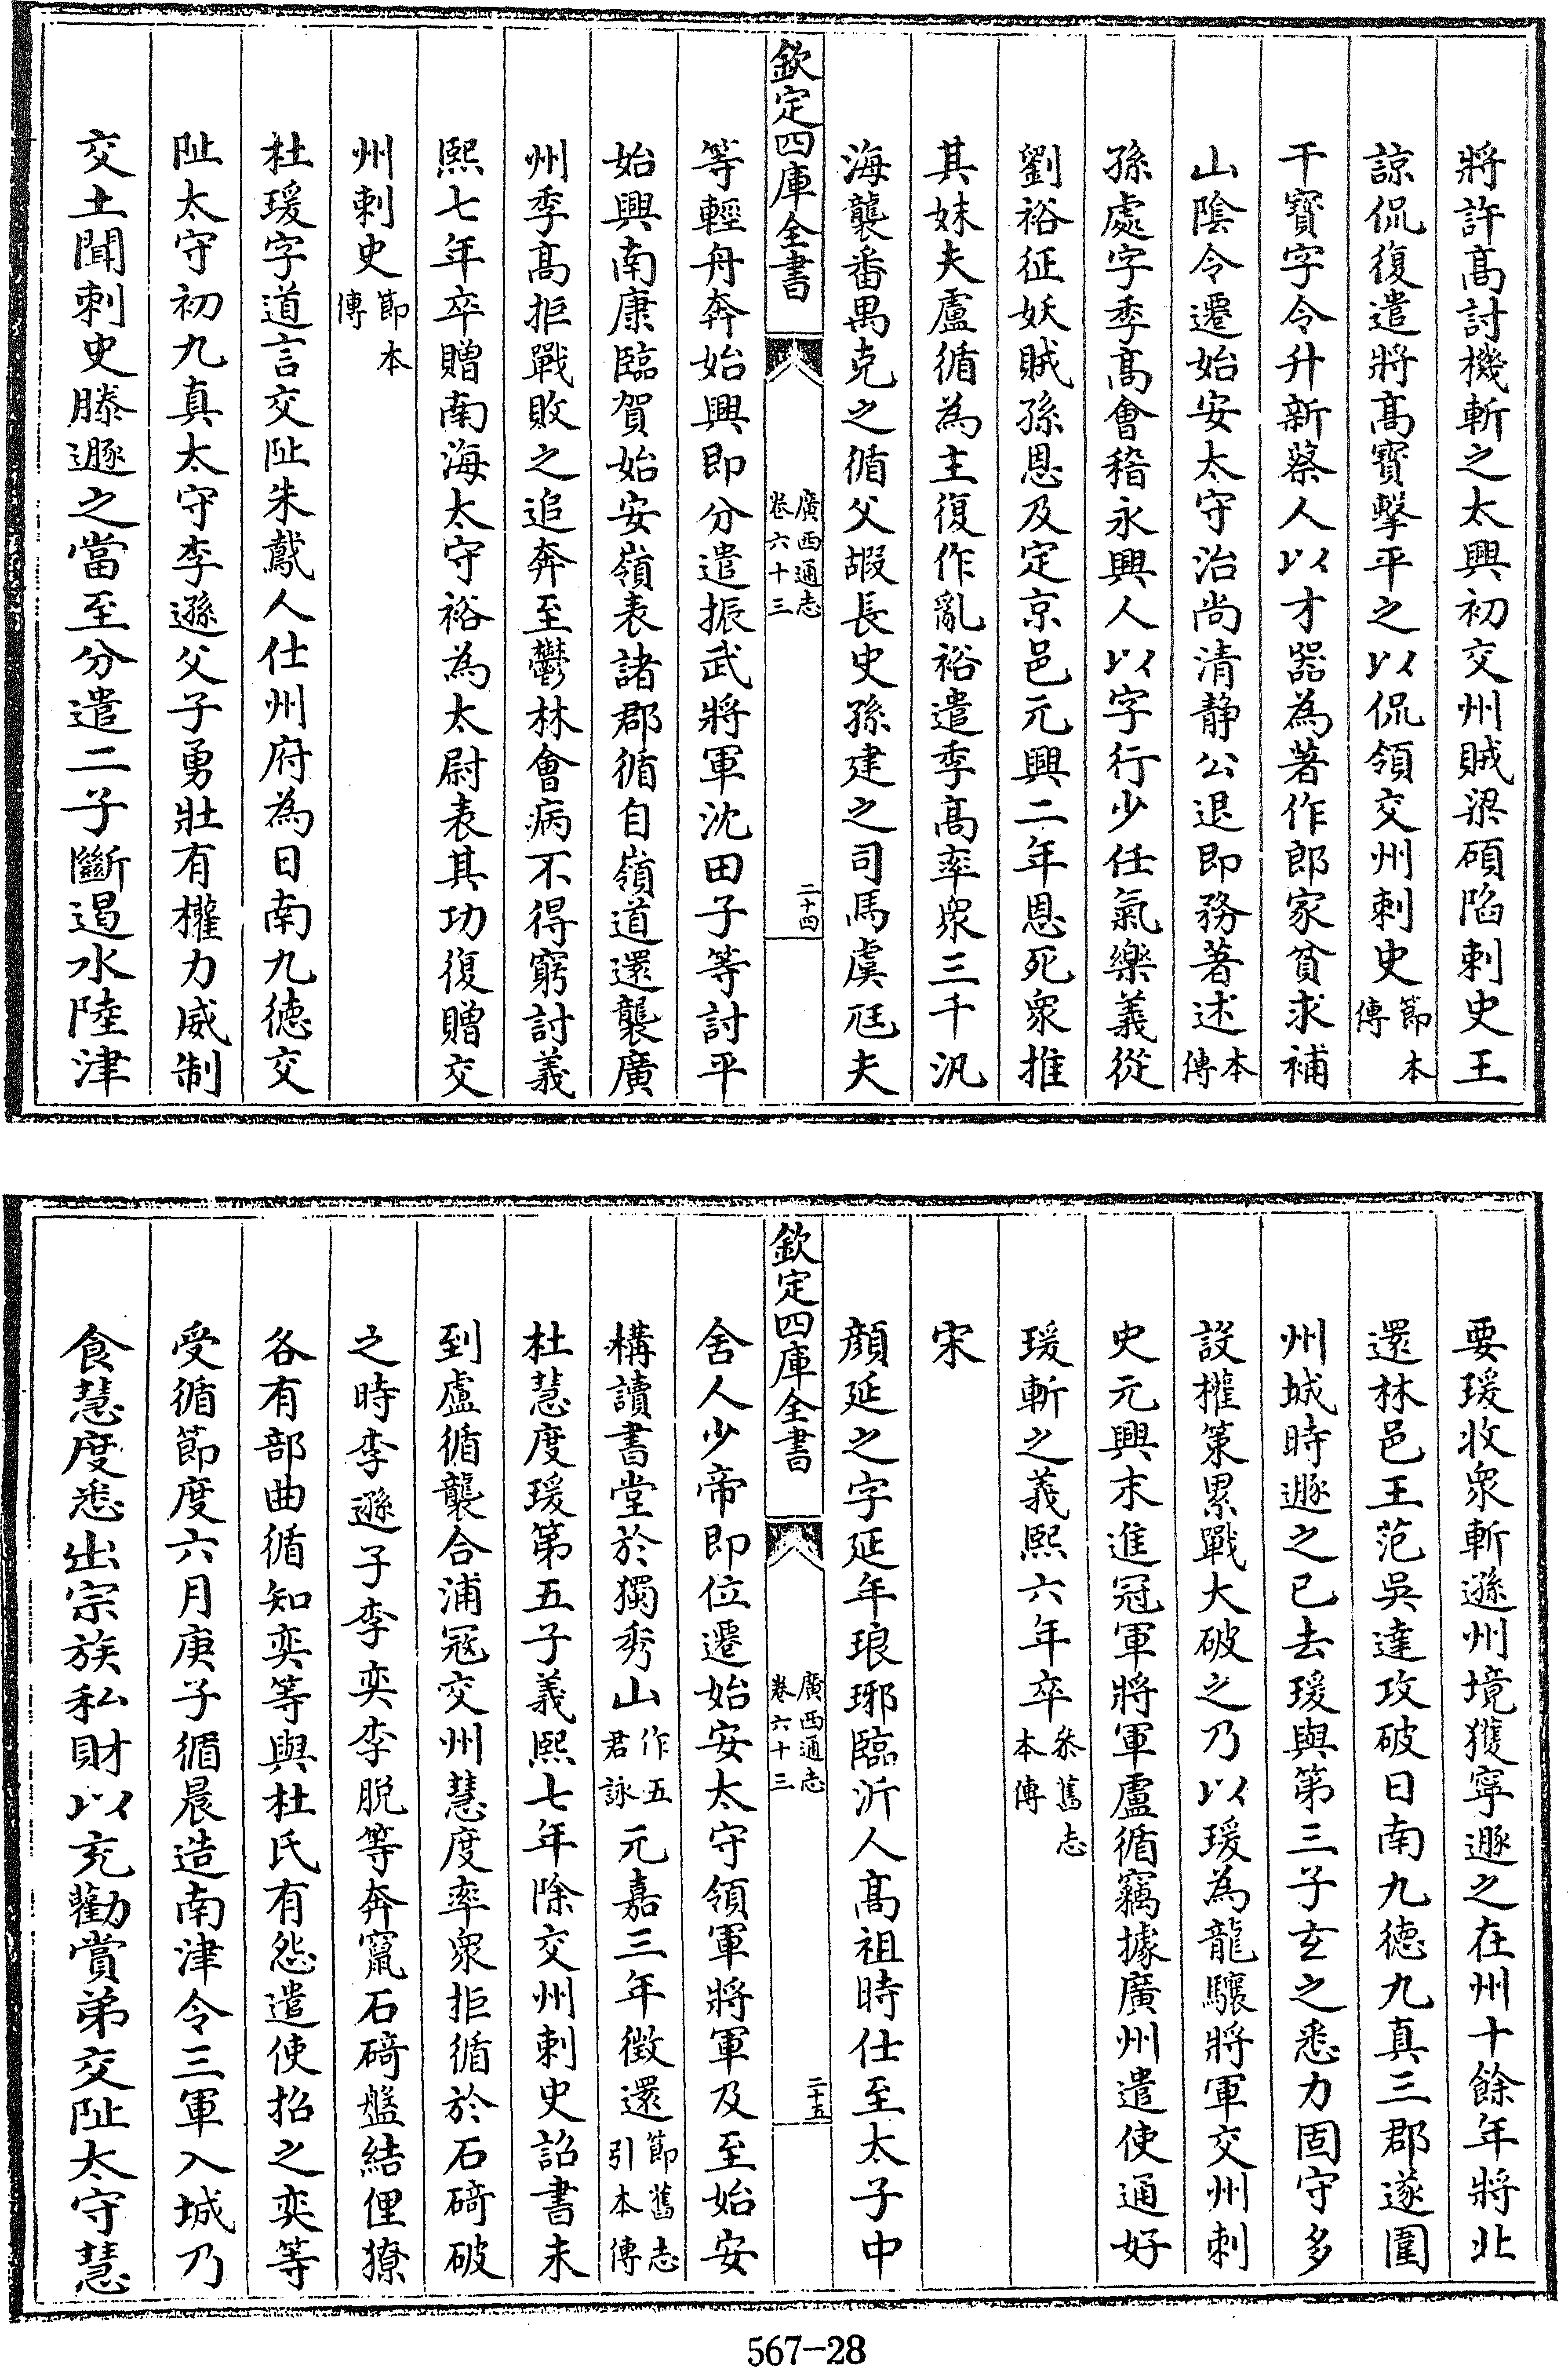 將許髙討機斬之太興初交州賊梁碩陷刺史王
諒侃復遣將髙寳擊平之以侃領交州刺史節本傳
干寳字令升新蔡人以才器為著作郎家貧求補
山隂令遷始安太守治尚清静公退即務著述本傳
孫處字季髙會稽永興人以字行少任氣樂義從
劉裕征妖賊孫恩及定京邑元興二年恩死衆推
其妹夫盧循為主復作亂裕遣季髙率衆三千汎
海襲番禺克之循父嘏長史孫建之司馬虞尫夫
欽定四庫全書
廣西通志
卷六十三
二十四
等輕舟奔始興即分遣振武將軍沈田子等討平
始興南康臨賀始安嶺表諸郡循自嶺道還襲廣
州季髙拒戰敗之追奔至鬱林會病不得窮討義
熙七年卒贈南海太守裕為太尉表其功復贈交
州刺史節本傳
杜瑗字道言交阯朱䳒人仕州府為日南九徳交
阯太守初九真太守李遜父子勇壯有權力威制
交土聞刺史滕遯之當至分遣二子斷遏水陸津
要瑗收衆斬遜州境獲寧遯之在州十餘年將北
還林邑王范吳達攻破日南九徳九真三郡遂圍
州城時遯之已去瑗與第三子玄之悉力固守多
設權策累戰大破之乃以瑗為龍驤將軍交州刺
史元興末進冠軍將軍盧循竊據廣州遣使通好
瑗斬之義熙六年卒叅舊志本傳
宋
顔延之字延年琅琊臨沂人髙祖時仕至太子中
欽定四庫全書
廣西通志
卷六十三
二十五
舍人少帝即位遷始安太守領軍將軍及至始安
構讀書堂於獨秀山作五君詠元嘉三年徴還節舊志引本傳
杜慧度瑗第五子義熙七年除交州刺史詔書未
到盧循襲合浦冦交州慧度率衆拒循於石碕破
之時李遜子李奕李脱等奔竄石碕盤結俚獠
各有部曲循知奕等與杜氏有怨遣使招之奕等
受循節度六月庚子循晨造南津令三軍入城乃
食慧度悉出宗族私財以充勸賞弟交阯太守慧
567-28